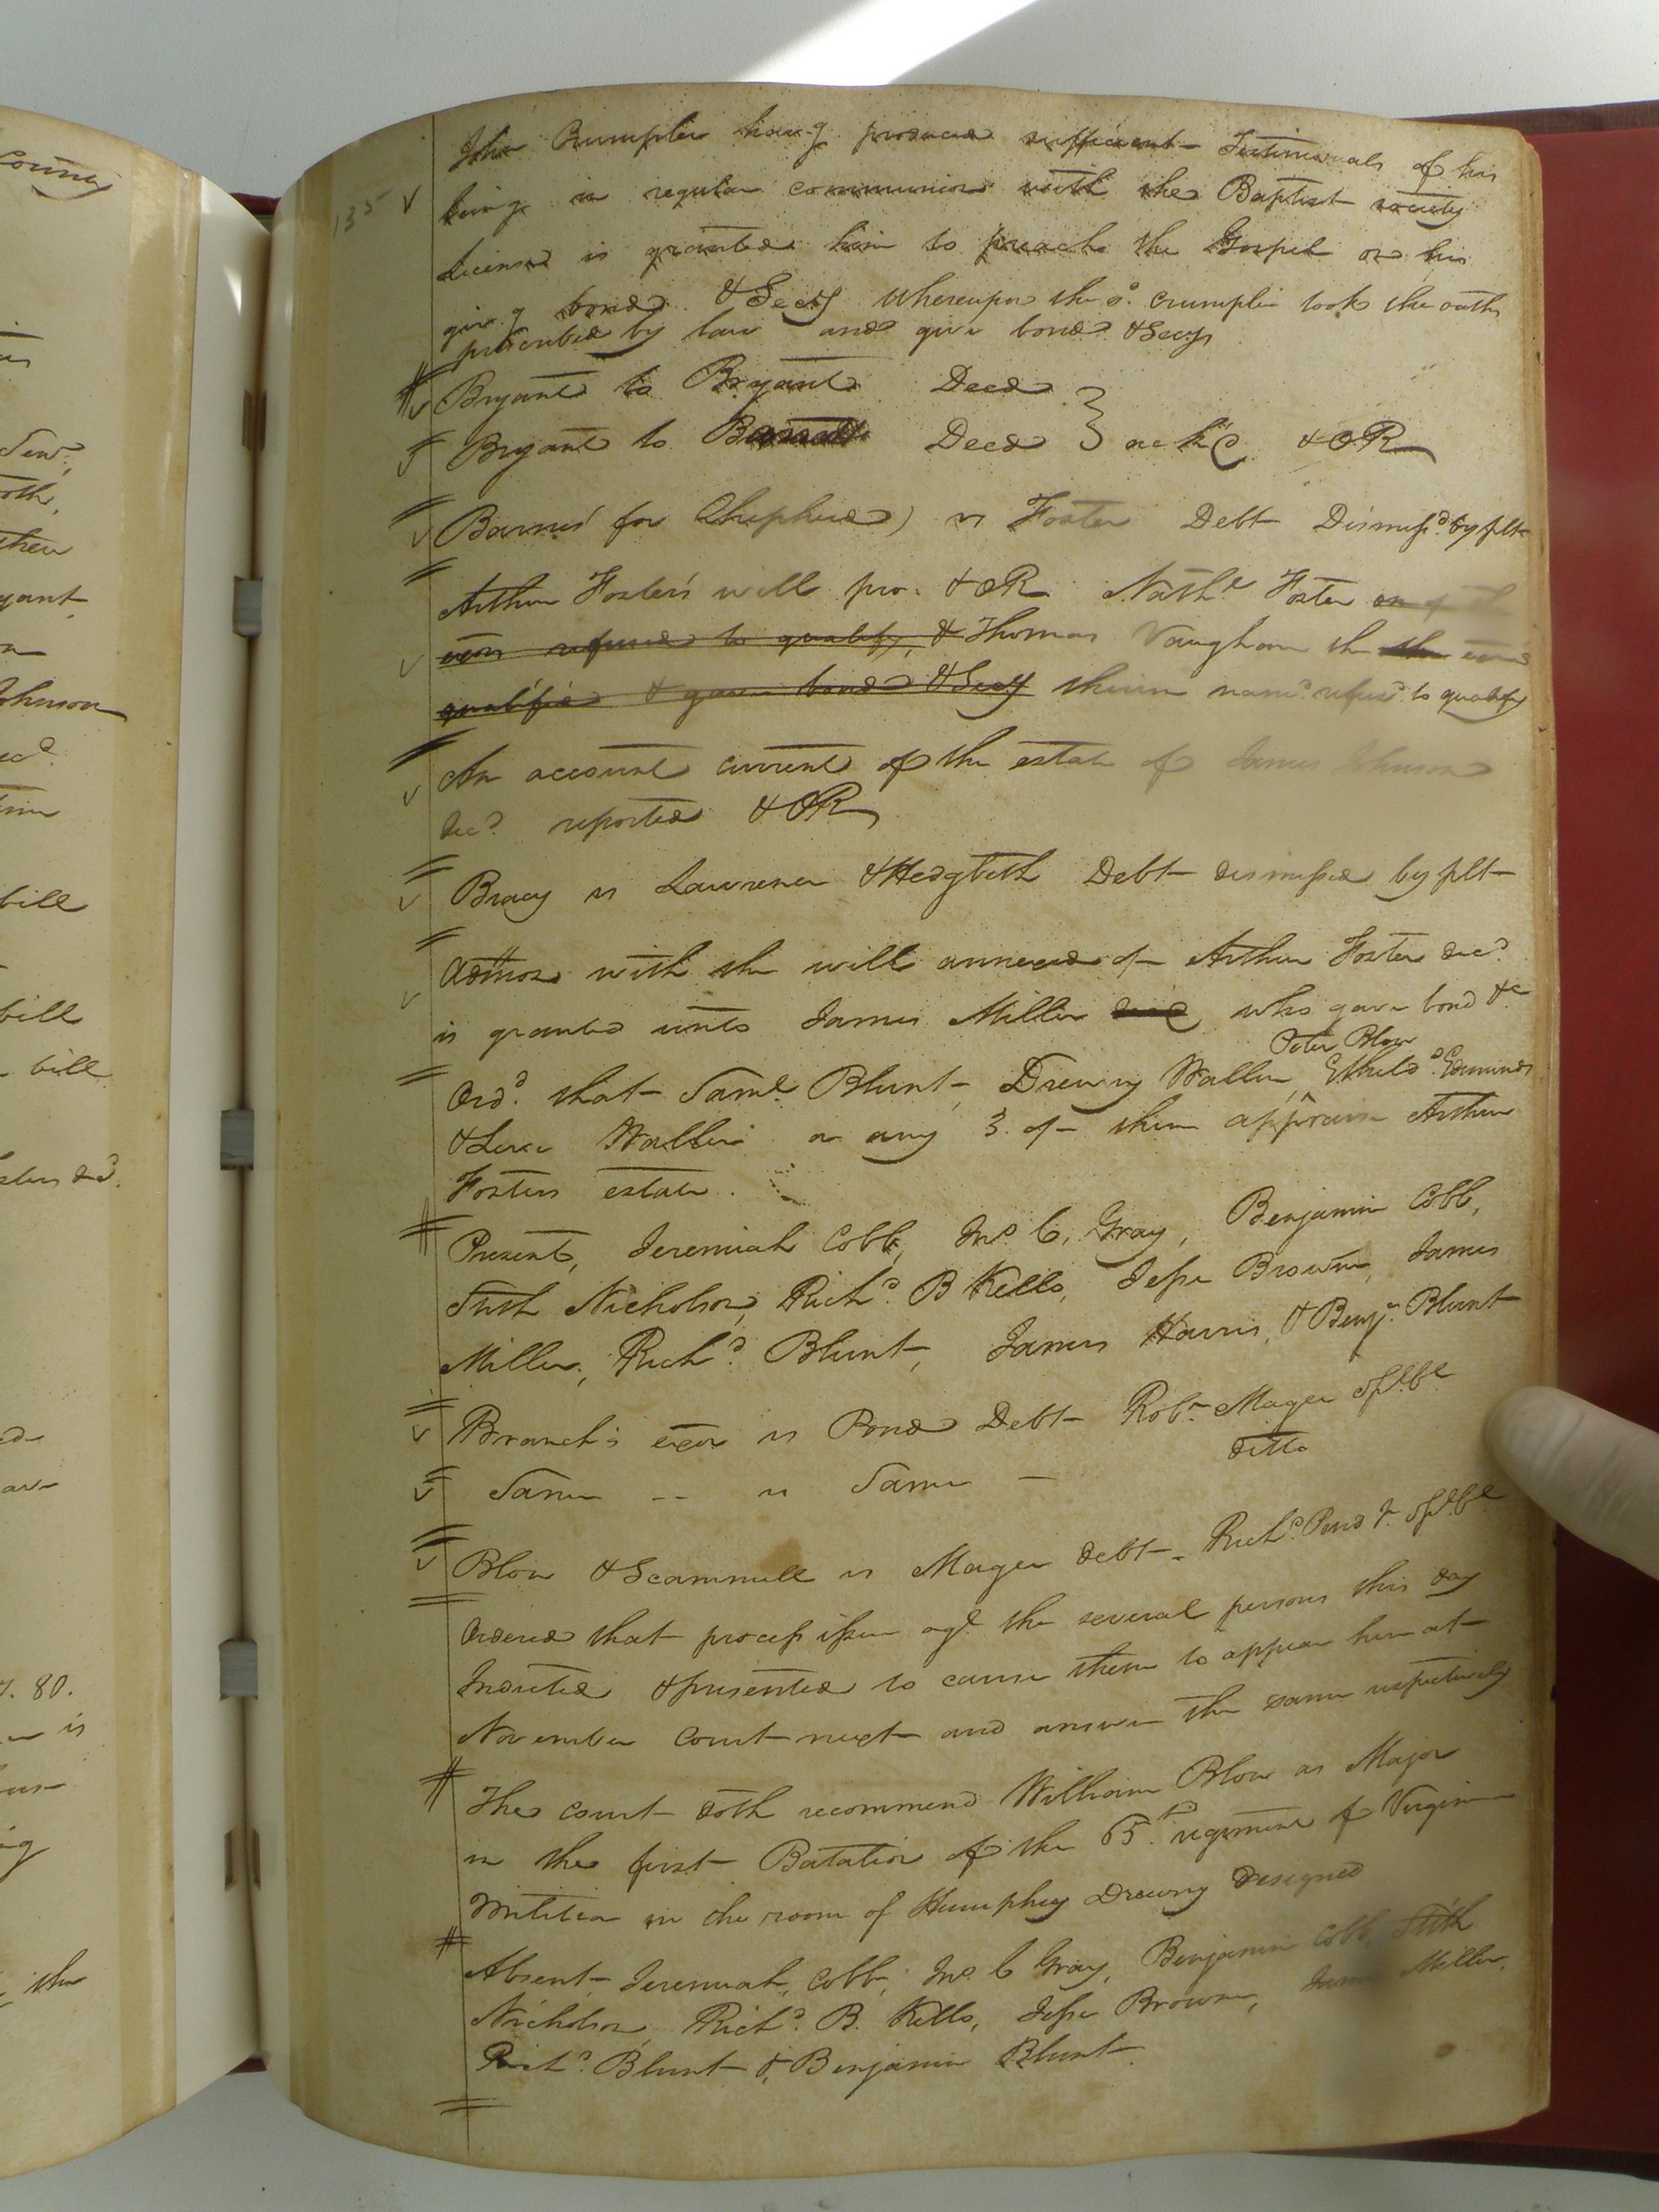 County
135
John Crumpler hav.g produced sufficient Testimonials of his
being in regular communion with the Baptist society
License is granted him to preach the Gospel on his
giv.g bond & Secy whereupon the sd. Crumpler took the oaths
prescribed by law and give bond & Secy
Bryant to Bryant Deed
Bryant to Deed } ackd & OR
Barnes for Shepherd) vs Foster Debt Dismissd. by plt
Arthur Foster's will pro. & OR Nathl Foster on of
exors refused to qualify, & Thomas Vaughan the the exors
qualified & gave bond & Secy therein namd. refusd. to qualify
An account current of the estate of James Johnson
decd. reported & OR
Bracy vs Lawrence & Hedgbeth Debt dismissed by plt
Admon with the will annexed of Arthur Foster decd.
is granted unto James Miller decd who gave bond &c
Peter Blow
Ordd. that Saml Blunt, Drewry Waller, Etheldd. Edmunds
& Levi Waller or any 3. of them appraise Arthur
Fosters estate.
Present, Jeremiah Cobb, Jno. C. Gray, Benjamin Cobb,
Stith Nicholson, Richd. B Kello, Jesse Browne, James
Miller, Richd. Blunt, James Harris, & Benjn. Blunt
Branch's exor vs Pond Debt Robt. Mager spl. bl
Same -- vs Same — ditto
Blow & Scammell vs Mager debt - Richd. Pond Jr. spl. bl
Ordered that process issue agt. the several persons this day
Indicted & presented to cause them to appear here at
November Court next and answer the same respectively
The court doth recommend William Blow as Major
in the first Batation of the 65th. regiment of Virginia
Militia in the room of Humphrey Drewry Resigned
Absent, Jeremiah, Cobb, Jno. C Gray, Benjamin Cobb Stith
Nicholson, Richd. B. Kello, Jesse Browne, James Miller,
Richd. Blunt & Benjamin Blunt